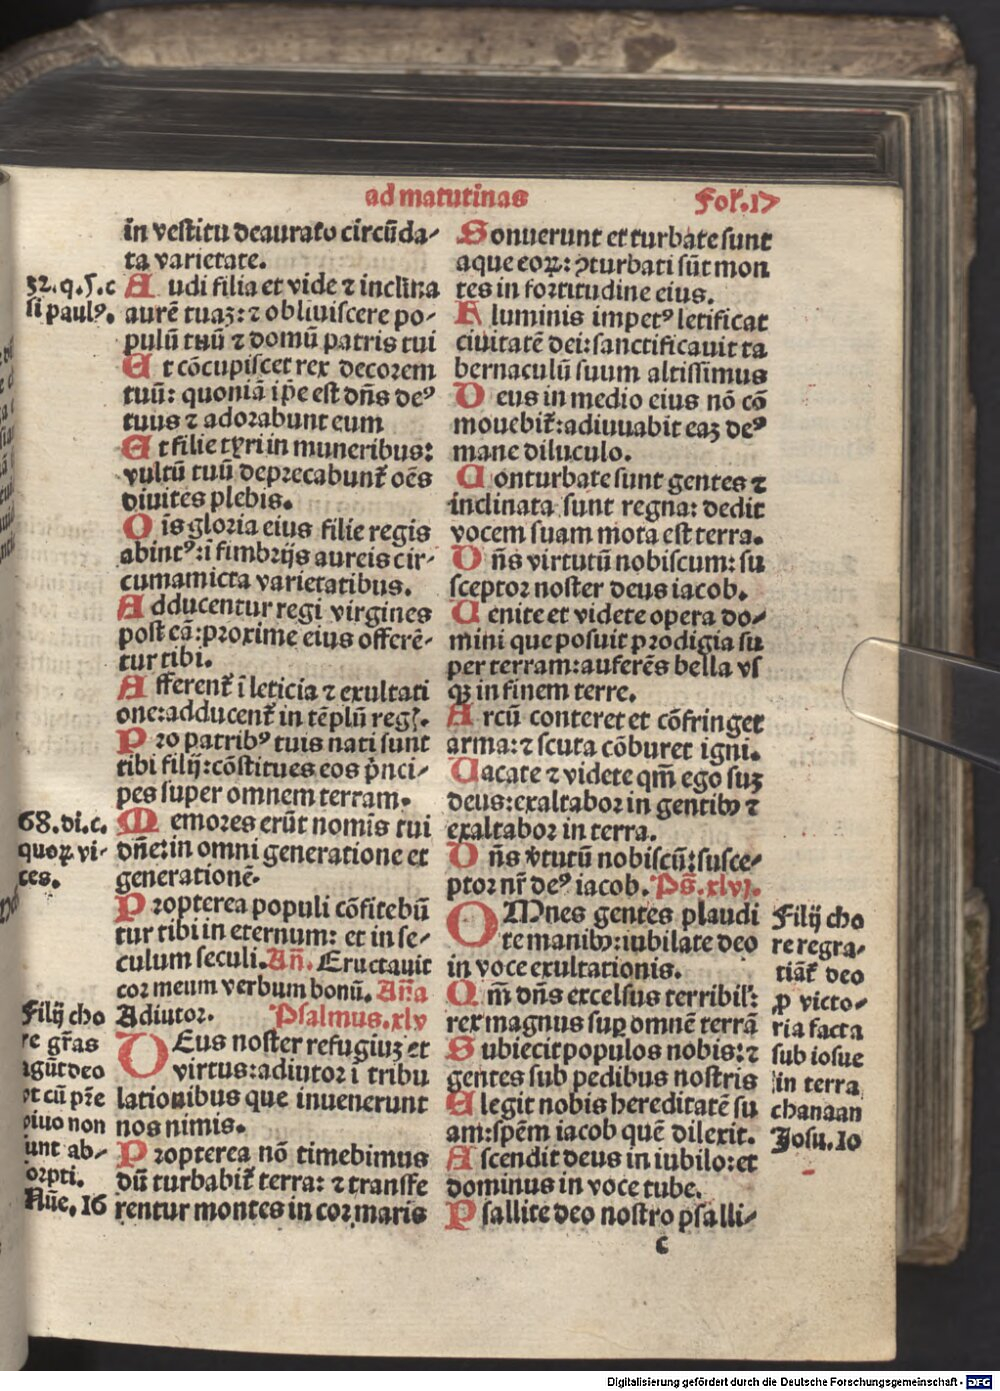 ad matutinas
Fol'.17
in vestitu deaurato circūda-
ta varietate.
32.q.5.c
si paulꝰ.
Audi filia et vide ⁊ inclina
aurē tuaʒ: ⁊ obliviscere po-
pulū tuū ⁊ domū patris tui
Et cōcupiscet rex decorem
tuū: quoniā ip̄e est dn̄s deꝰ
tuus ⁊ adorabunt eum
Et filie tyri in muneribus:
vultū tuū deprecabunt᷑ oēs
divites plebis.
Oīs gloria eius filie regis
abintꝰ: i fimbrijs aureis cir-
cumamicta varietatibus.
Adducentur regi virgines
post eā: proxime eius offerē-
tur tibi.
Afferent᷑ ī leticia ⁊ exultati
one: adducent᷑ in tēplū reg̃.
Pro patribꝰ tuis nati sunt
tibi filij: cōstitues eos p̍nci-
pes super omnem terram.
68.di.c.
quoꝝ vi-
ces.
Memores erūt nomīs tui
dn̄e: in omni generatione et
generationē.
Propterea populi cōfitebū
tur tibi in eternum: et in se-
culum seculi. Añ. Eructavit
cor meum verbum bonū. Aña
Adiutor. Psalmus.xlv
Filij cho
re gr̄as
agūt deo
ot cū pr̄e
oiuo non
unt ab-
orpti.
Nūe. 16
DEus noster refugiuʒ et
virtus: adiutor i tribu
lationibus que invenerunt
nos nimis.
Propterea nō timebimus
dū turbabit᷑ terra: ⁊ transfe
rentur montes in cor maris
Sonuerunt et turbate sunt
aque eoꝝ: ꝯturbati sūt mon
tes in fortitudine eius.
Fluminis impetꝰ letificat
civitatē dei: sanctificavit ta
bernaculū suum altissimus
Deus in medio eius nō cō
movebit᷑: adiuvabit eaʒ deꝰ
mane diluculo.
Conturbate sunt gentes ⁊
inclinata sunt regna: dedit
vocem suam mota est terra.
Dn̄s virtutū nobiscum: su
sceptor noster deus iacob.
Venite et videte opera do-
mini que posuit prodigia su
per terram: auferēs bella vs
qʒ in finem terre.
Arcū conteret et cōfringet
arma: ⁊ scuta cōburet igni.
Vacate ⁊ videte qm̄ ego suʒ
deus: exaltabor in gentibꝰ ⁊
exaltabor in terra.
Dn̄s v̍tutū nobiscū: susce-
ptor nr̄ deꝰ iacob. Ps̄.xlvj.
OMnes gentes plaudi
te manibꝰ: iubilate deo
in voce exultationis.
Qm̄ dn̄s excelsus terribil':
rex magnus suꝑ omnē terrā
Subiecit populos nobis: ⁊
gentes sub pedibus nostris
Elegit nobis hereditatē su
am: spēm iacob quē dilexit.
Ascendit deus in iubilo: et
dominus in voce tube.
Psallite deo nostro psalli-
Filij cho
re regra-
tiāt᷑ deo
ꝓ victo-
ria facta
sub iosue
in terra
chanaan
Josu. 10
c
Digitalisierung gefördert durch die Deutsche Forschungsgemeinschaft - DFG